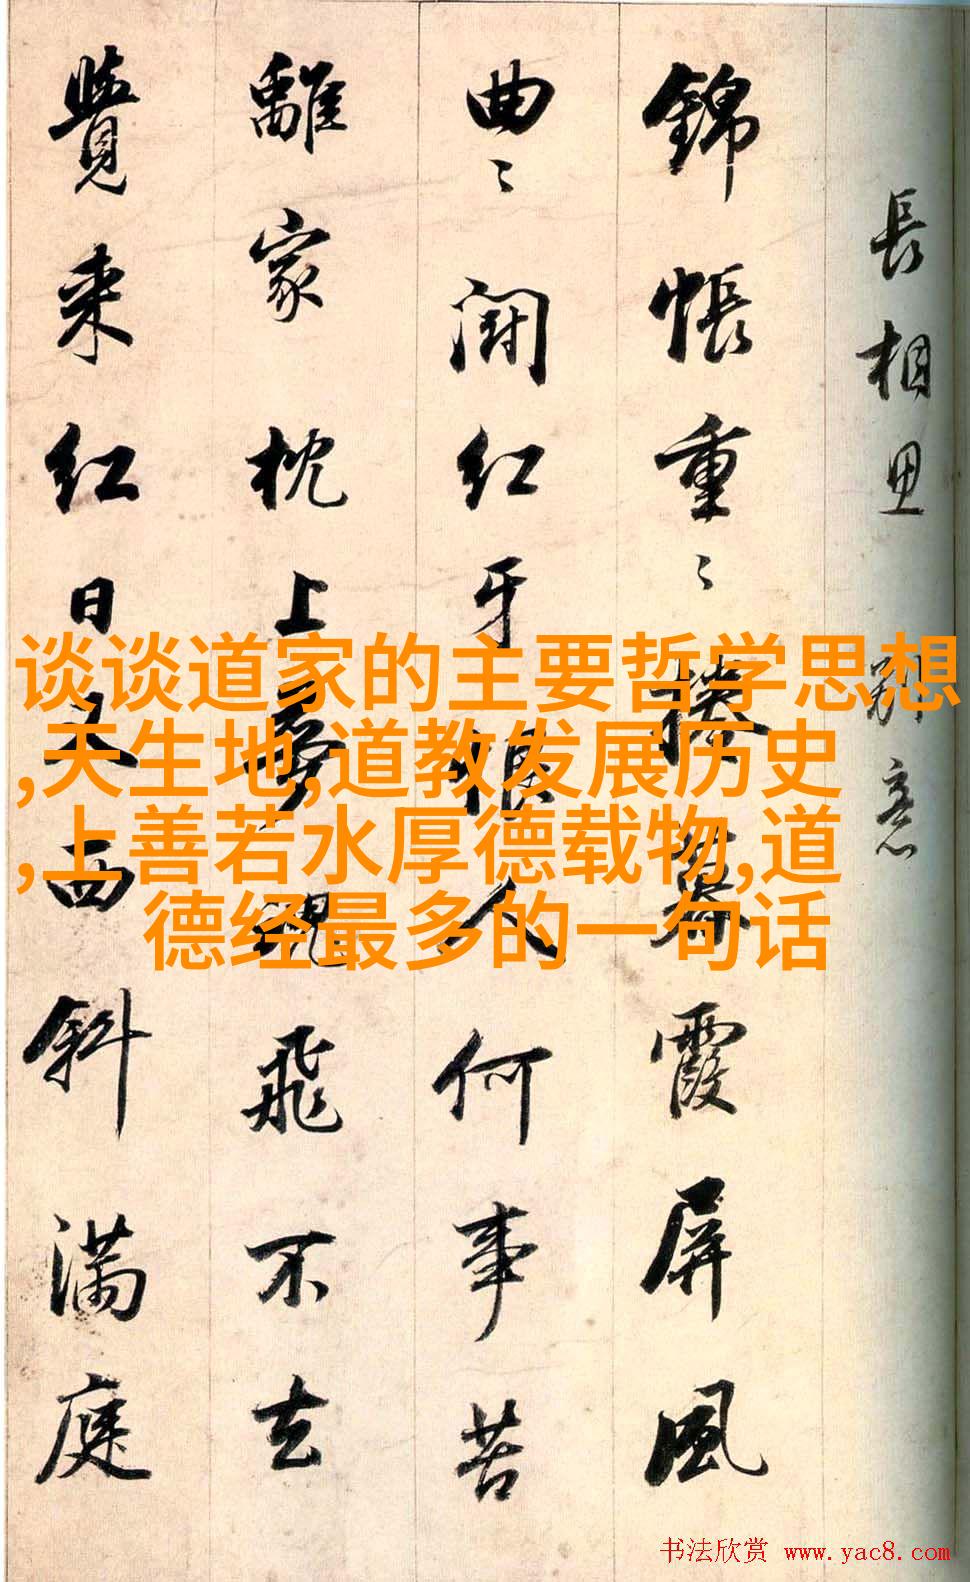 長相思 別意
錦帳重〻捲暮霞屏風
曲〻闘红牙恨人何事苦
離家枕上夢魂飛不去
覺来红日又西斜满庭
谈谈道家的主要哲学思想
,天生地,道教发展历史
,上善若水厚德载物,道
德经最多的一句话
书法欣赏 www.yac8.com